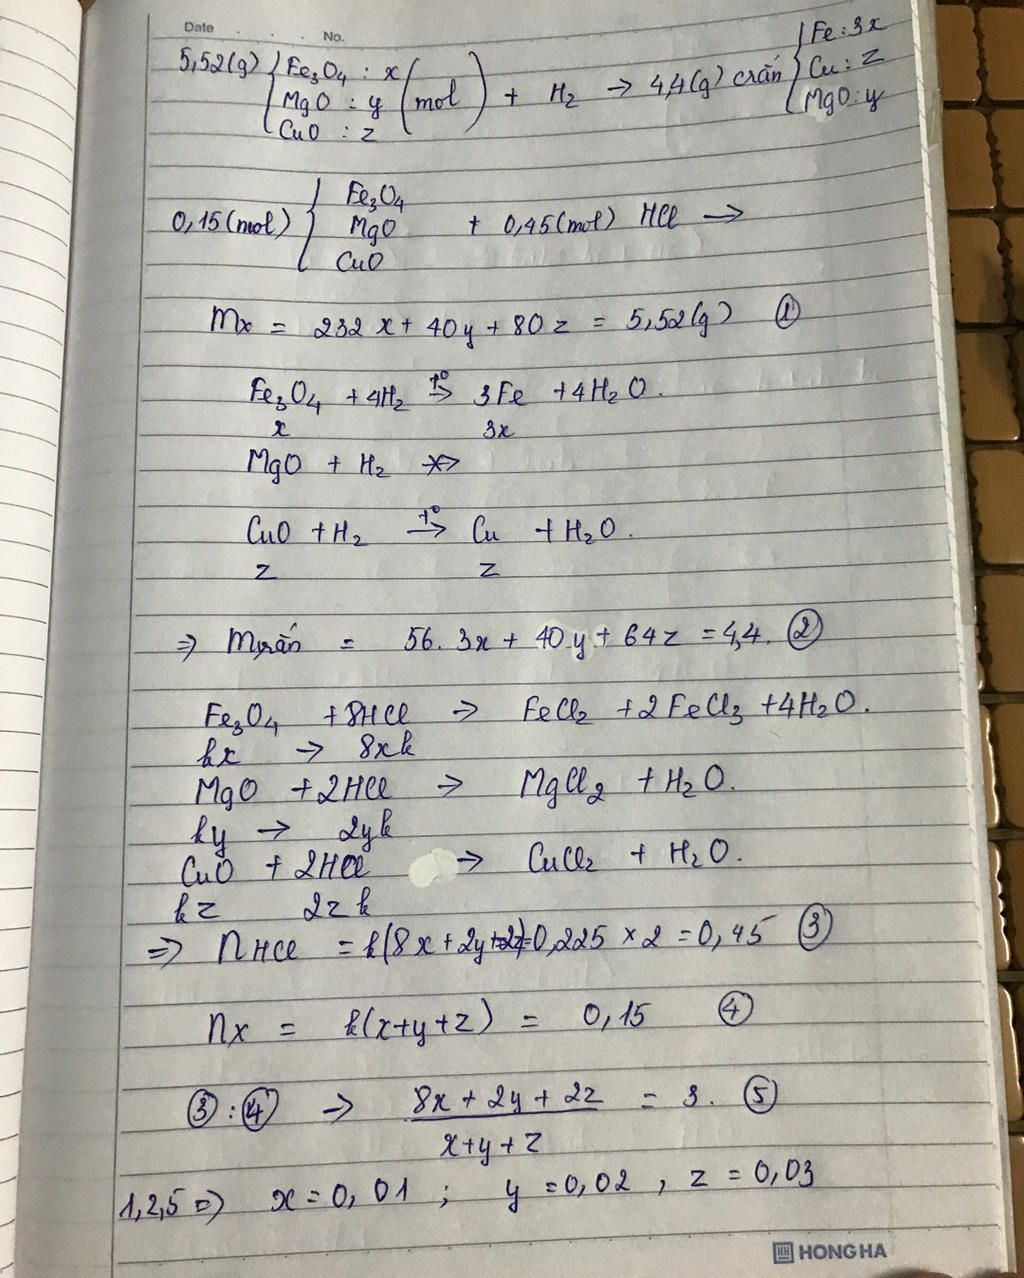 Date . . . No.
5,52(g) { Fe3O4 : x (mol) + H2 → 4,4(g) crắn { Fe : 3x
MgO : y Cu : z
CuO : z MgO : y
0,15(mol) { Fe3O4
MgO + 0,45(mol) HCl →
CuO
mx = 232x + 40y + 80z = 5,52(g) ①
Fe3O4 + 4H2 t°→ 3Fe + 4H2O.
x 3x
MgO + H2 -×->
CuO + H2 t°→ Cu + H2O.
z z
⇒ mrắn = 56.3x + 40.y + 64z = 4,4. ②
Fe3O4 + 8HCl → FeCl2 + 2FeCl3 + 4H2O.
kx → 8xk
MgO + 2HCl → MgCl2 + H2O.
ky → 2yk
CuO + 2HCl → CuCl2 + H2O.
kz 2zk
⇒ nHCl = k(8x + 2y + 2z) = 0,225 × 2 = 0,45 ③
nx = k(x+y+z) = 0,15 ④
③ : ④ → 8x + 2y + 2z = 3. ⑤
x+y+z
1,2,5 ⇒ x = 0,01 ; y = 0,02 , z = 0,03
HH HONG HA